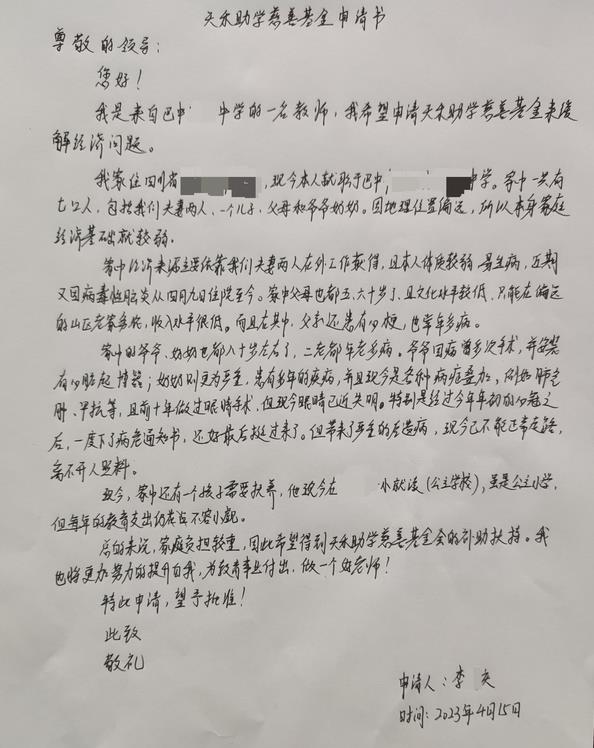 天乐助学慈善基金申请书
尊敬的领导：
您好！
我是来自巴中 中学的一名教师，我希望申请天乐助学慈善基金来缓
解经济问题。
我家住四川省 ，现今本人就职于巴中 中学。家中一共有
七口人，包括我们夫妻两人、一个儿子、父母和爷爷奶奶。因地理位置偏远，所以本身家庭
经济基础就较弱。
家中经济来源主要依靠我们夫妻两人在外工作获得，且本人体质较弱易生病，近期
又因病毒性脑炎从四月九日住院至今。家中父母也都五、六十岁了，且文化水平较低，只能在偏远
的山区老家务农，收入水平很低。而且在其中，父亲还患有心梗，也常年多病。
家中的爷爷、奶奶也都八十岁左右了，二老都年老多病。爷爷因病曾多次手术，并安装
有心脏起搏器；奶奶则更为严重，患有多年的疾病，并且现今是各种病症叠加，例如肺气
肿、甲亢等，且前十年做过眼睛手术，但现今眼睛已近失明。特别是经过今年年初的 之
后，一度下了病危通知书，还好最后挺过来了。但带来了严重的后遗病，现今已不能正常走路，
离不开人照料。
现今，家中还有一个孩子需要扶养，他现今在 小就读(公立学校)，虽是公立小学，
但每年的教育支出仍旧不容小觑。
总的来说，家庭负担较重，因此希望得到天乐助学慈善基金会的补助扶持。我
也将更加努力的提升自我，为教育事业付出，做一个好老师！
特此申请，望予批准！
此致
敬礼
申请人：李
时间：2023年4月15日